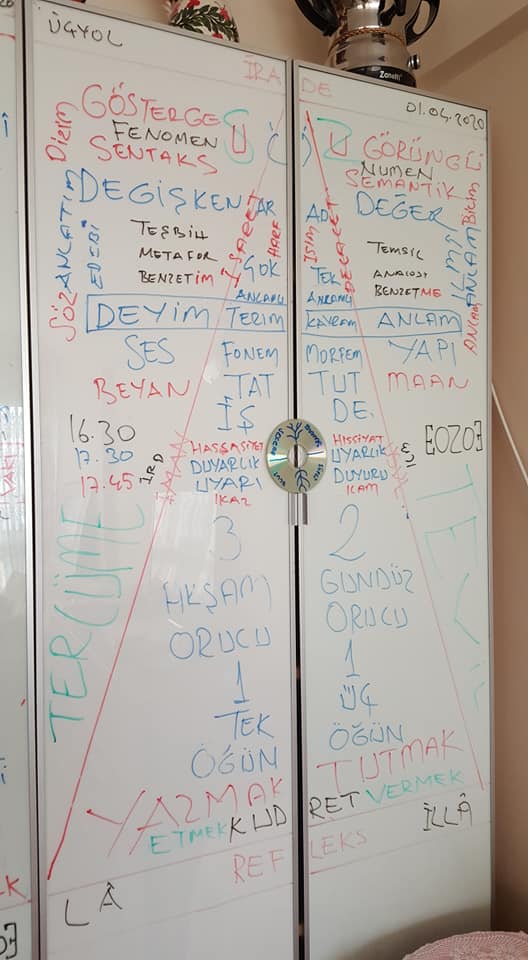 ÜGYOL
İRADE
01.04.2020
Zanetti
Dizim
GÖSTERGE
FENOMEN
SENTAKS
GÖRÜNGÜ
NUMEN
SEMANTİK
SÖZ ANLATIM
EDEBİ
DEĞİŞKEN AR
AD DEĞER
İLMİ
ANLAM BİLİM
İŞARET
HARF
İSİM
TEŞBİH
METAFOR
BENZETİM
ÇOK
ANLAMLI
TEK
ANLAMLI
TEMSİL
ANALOJİ
BENZETME
DEYİM TERİM KAVRAM ANLAM
SES FONEM MORFEM YAPI
BEYAN TAT TUT MAAN
İŞ DE.
16.30
17.30
17.45
İRD
HASSASİYET
DUYARLIK
UYARI
İKAZ
HİSSİYAT
UYARLIK
DUYURU
İKAM
TERCÜME
3
AKŞAM
ORUCU
1
TEK
ÖĞÜN
2
GÜNDÜZ
ORUCU
1
ÜÇ
ÖĞÜN
YAZMAK TUTMAK
ETMEK KUD RET VERMEK
REFLEKS
LÂ İLLÂ